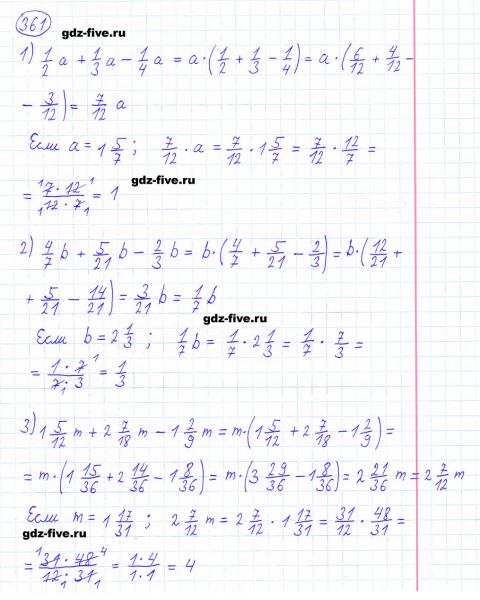 361
gdz-five.ru
1) 1/2 a + 1/3 a − 1/4 a = a·(1/2 + 1/3 − 1/4) = a·(6/12 + 4/12 −
− 3/12) = 7/12 a
Если a = 1 5/7; 7/12 · a = 7/12 · 1 5/7 = 7/12 · 12/7 =
gdz-five.ru
= 7·12/12·7 = 1
2) 4/7 b + 5/21 b − 2/3 b = b·(4/7 + 5/21 − 2/3) = b·(12/21 +
+ 5/21 − 14/21) = 3/21 b = 1/7 b
gdz-five.ru
Если b = 2 1/3; 1/7 b = 1/7 · 2 1/3 = 1/7 · 7/3 =
= 1·7/7·3 = 1/3
3) 1 5/12 m + 2 7/18 m − 1 2/9 m = m·(1 5/12 + 2 7/18 − 1 2/9) =
= m·(1 15/36 + 2 14/36 − 1 8/36) = m·(3 29/36 − 1 8/36) = 2 21/36 m = 2 7/12 m
Если m = 1 17/31; 2 7/12 m = 2 7/12 · 1 17/31 = 31/12 · 48/31 =
gdz-five.ru
= 31·48/12·31 = 1·4/1·1 = 4